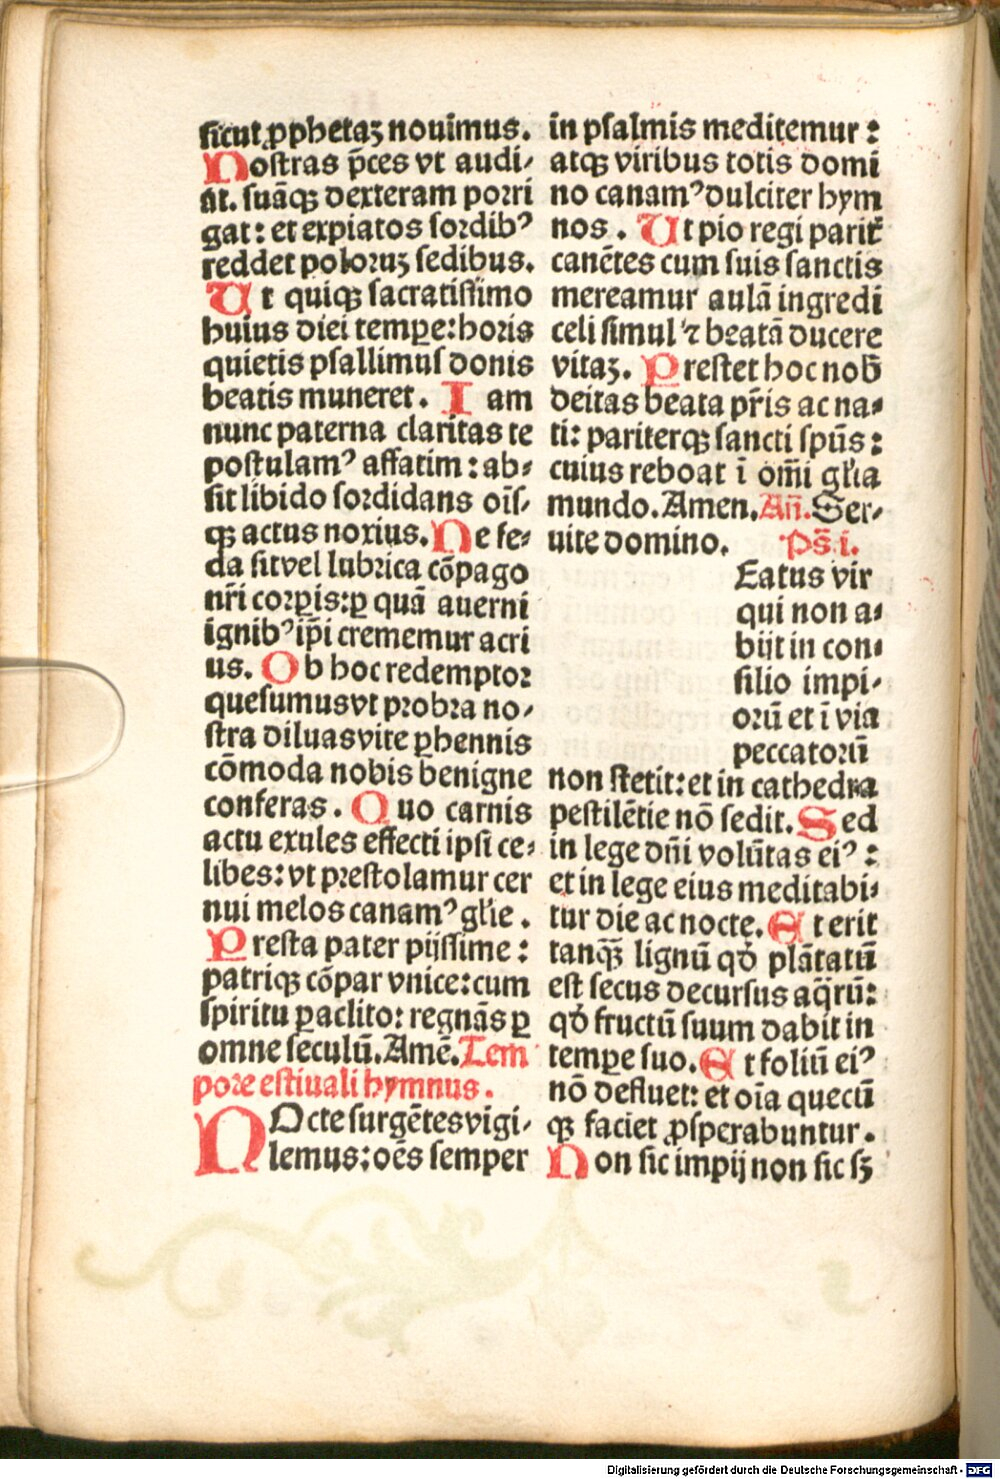 sicut ꝓphetaꝫ nouimus.
Nostras p̄ces vt audi⸗
at. suāqꝫ dexteram porri
gat: et expiatos sordibꝰ
reddet poloruꝫ sedibus.
Ut quiqꝫ sacratissimo
huius diei tempꝑe: horis
quietis psallimus donis
beatis muneret. Iam
nunc paterna claritas te
postulamꝰ affatim: ab⸗
sit libido sordidans oīs⸗
qꝫ actus noxius. Ne fe⸗
da sit vel lubrica cōpago
nr̄i corꝑis: ꝑ quā auerni
ignibꝰ ip̄i crememur acri
us. Ob hoc redemptor
quesumus vt probra no⸗
stra diluas vite ꝑhennis
cōmoda nobis benigne
conferas. Quo carnis
actu exules effecti ipsi ce⸗
libes: vt prestolamur cer
nui melos canamꝰ gl̄ie.
Presta pater pijssime:
patriqꝫ cōpar vnice: cum
spiritu ꝑaclito: regnās ꝑ
omne seculū. Amē. Tem
pore estiuali hymnus.
NOcte surgētes vigi⸗
lemus: oēs semper
in psalmis meditemur:
atqꝫ viribus totis domi
no canamꝰ dulciter hym
nos. Ut pio regi parit᷑
canētes cum suis sanctis
mereamur aulā ingredi
celi simul ⁊ beatā ducere
vitaꝫ. Prestet hoc nob̄
deitas beata pr̄is ac na⸗
ti: pariterqꝫ sancti spūs:
cuius reboat ī om̄i gl̄ia
mundo. Amen. Añ. Ser⸗
uite domino. Ps̄ i.
Eatus vir
qui non a⸗
bijt in con⸗
silio impi⸗
orū et ī via
peccatorū
non stetit: et in cathedra
pestilētie nō sedit. Sed
in lege dn̄i volūtas eiꝰ:
et in lege eius meditabi⸗
tur die ac nocte. Et erit
tanqꝫ̄ lignū qḋ plātatū
est secus decursus aq̄rū:
qḋ fructū suum dabit in
tempꝑe suo. Et foliū eiꝰ
nō defluet: et oīa quecū
qꝫ faciet ꝓsperabuntur.
Non sic impij non sic sꝫ
Digitalisierung gefördert durch die Deutsche Forschungsgemeinschaft - DFG